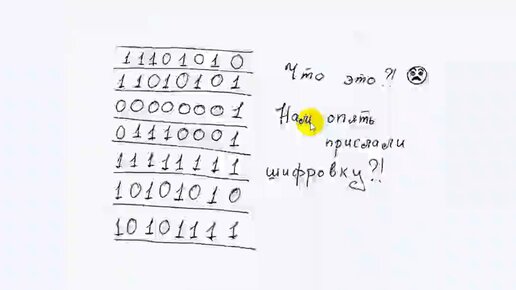 11101010
11010101
00000001
01110001
11111111
10101010
10101111
Что это?!
Нам опять
прислали
шифровку?!